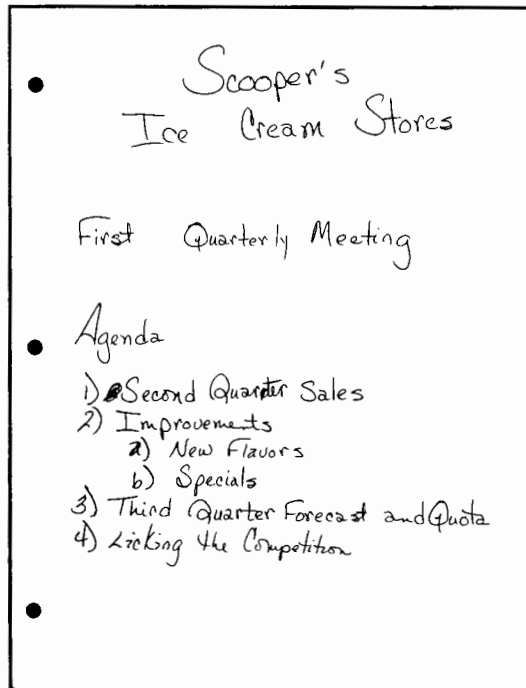 Scooper's
Ice Cream Stores
First Quarterly Meeting
Agenda
1) Second Quarter Sales
2) Improvements
a) New Flavors
b) Specials
3) Third Quarter Forecast and Quota
4) Licking the Competition